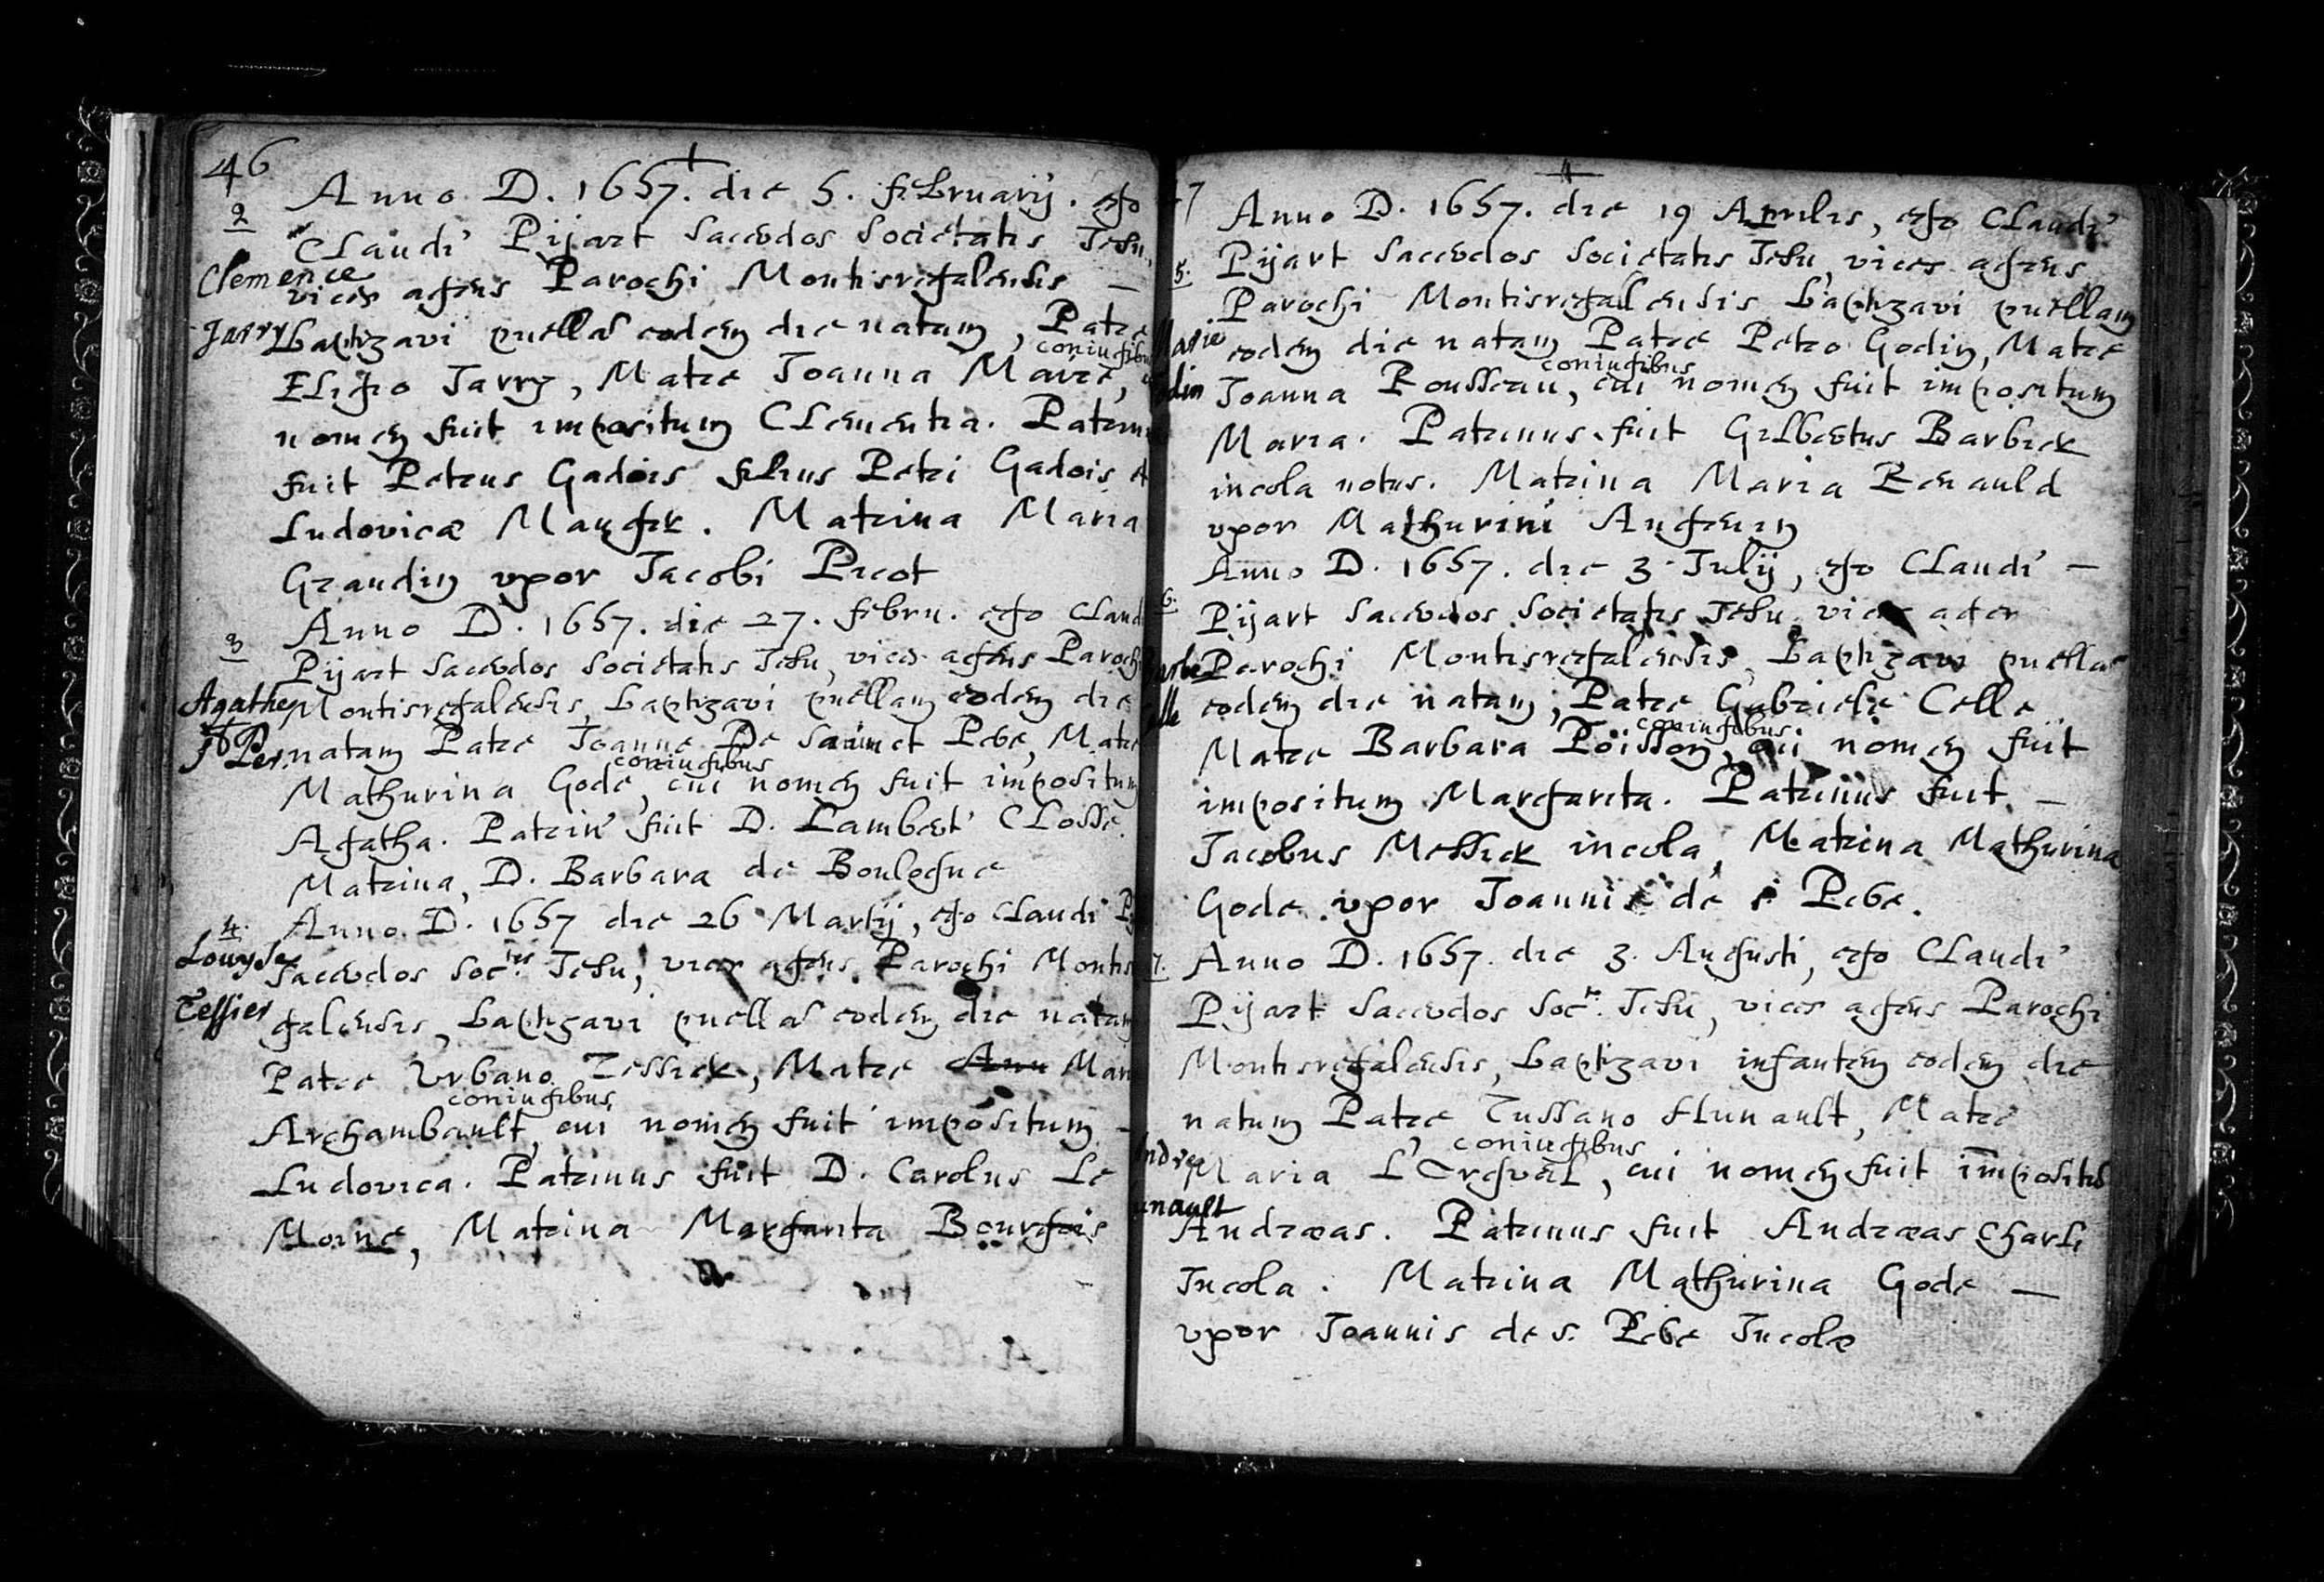 46
Anno D. 1657. die 5. februarij. ego
2
Claudi' Pijart Sacerdos Societatis Jesu,
Clemence
vices agens Parochi Montisregalensis —
Jarry
baptizavi puellā eodem die natam, Patre
coniugibus
Eligio Jarry, Matre Joanna Marié,
nomen fuit impositum Clementia. Patrinus
fuit Petrus Gadois filius Petri Gadois &
Ludovicæ Mauger. Matrina Maria
Grandin uxor Jacobi Picot
Anno D. 1657. die 27. febru. ego Claud
3
Pijart Sacerdos Societatis Jesu, vices agens Parochi
Agathe
Montisregalensis, baptizavi puellam eodem die
St Per.
natam Patre Joanne De Sainct Pere, Matre
coniugibus
Mathurina Godé, cui nomen fuit impositum
Agatha. Patrin' fuit D. Lambert' Closse.
Matrina, D. Barbara de Boulogne
4.
Anno D. 1657 die 26 Martij, ego Claudi' Pij
Lowyse
Sacerdos Soctis Jesu, vices agens Parochi Montis
Tessier
galensis, baptizavi puellā eodem die natam
Patre Urbano Tessier, Matre Ann Mari
coniugibus
Archambault, cui nomen fuit impositum —
Ludovica. Patrinus fuit D. Carolus Le
Moine, Matrina Margarita Bourgois
47
Anno D. 1657. die 19 Aprilis, ego Claudi'
5.
Pijart Sacerdos Societatis Jesu, vices agens
Parochi Montisregalensis baptizavi puellam
Marie
eodem die natam Patre Petro Godin, Matre
coniugibus
odin
Joanna Rousseau, cui nomen fuit impositum
Maria. Patrinus fuit Gilbertus Barbier
incola notus. Matrina Maria Renauld
uxor Mathurini Langevin
Anno D. 1657. die 3 Julij, ego Claudi' —
6.
Pijart Sacerdos Societatis Jesu, vices agens
Parochi Montisregalensis, baptizavi puellā
elle
eodem die natam, Patre Gabriele Celle
coniugibus
Matre Barbara Poisson, cui nomen fuit
impositum Margarita. Patrinus fuit —
Jacobus Messier incola, Matrina Mathurina
Gode uxor Joannis de s Pere.
7.
Anno D. 1657. die 3. Augusti, ego Claudi'
Pijart Sacerdos Soc.t. Jesu, vices agens Parochi
Montisregalensis, baptizavi infantem eodem die
natum Patre Tussano Hunault, Matre
coniugibus
Andre
Maria L'Orgueil, cui nomen fuit impositū
unault
Andræas. Patrinus fuit Andræas Charli
Incola. Matrina Mathurina Gode —
uxor Joannis de s. Pere Incolæ